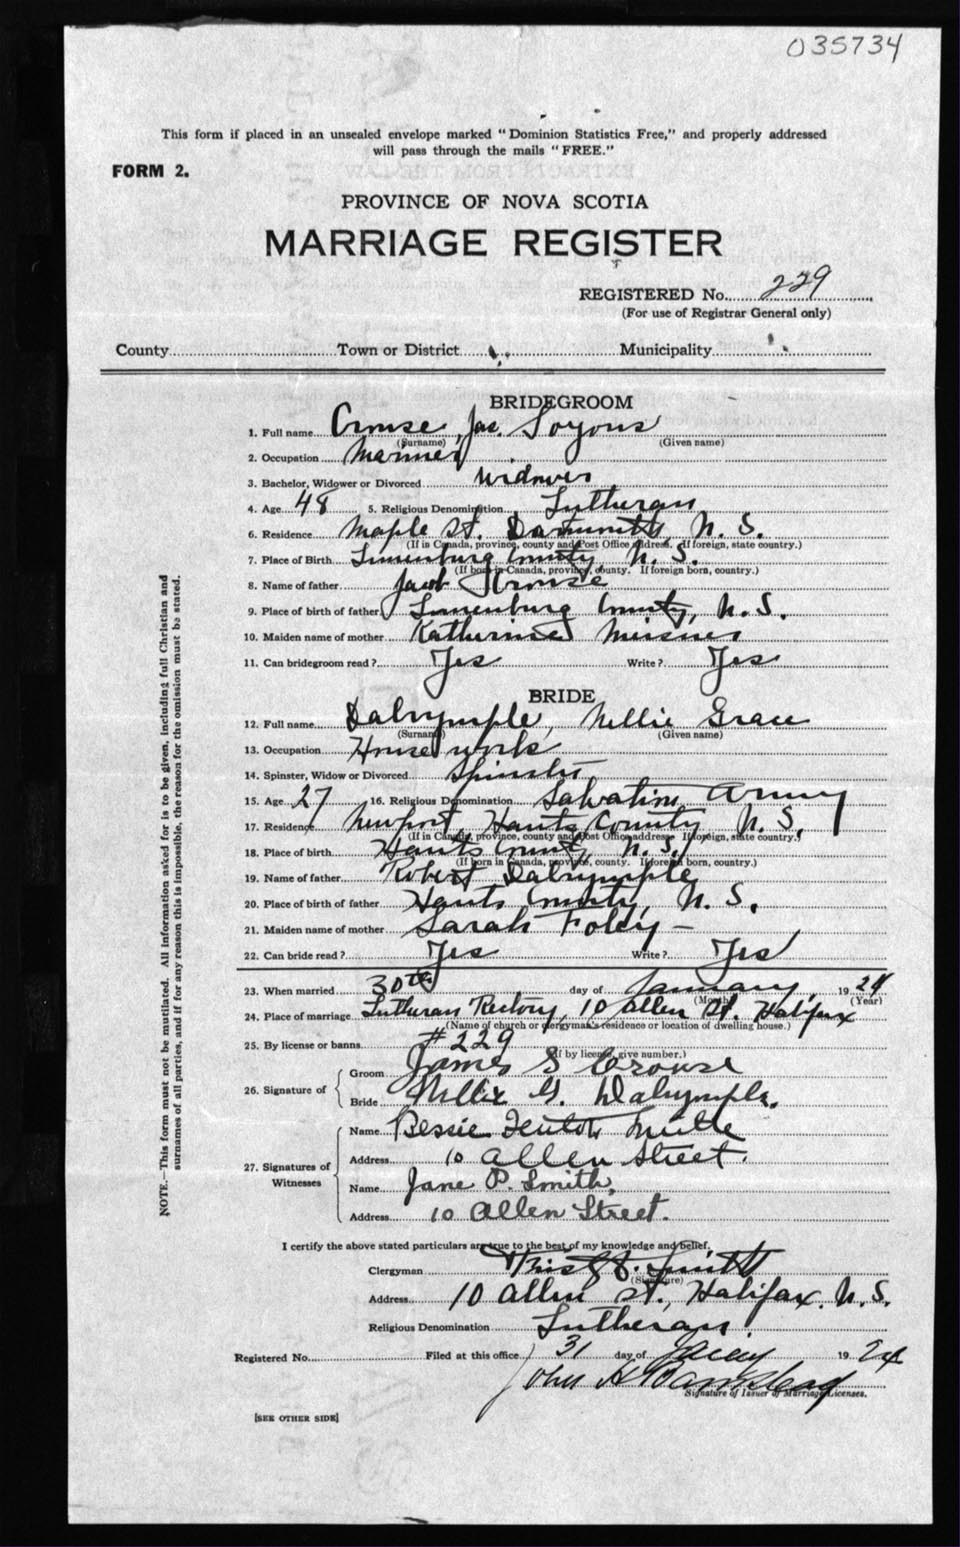 035734
This form if placed in an unsealed envelope marked "Dominion Statistics Free," and properly addressed
will pass through the mails "FREE."
FORM 2.
PROVINCE OF NOVA SCOTIA
MARRIAGE REGISTER
REGISTERED No. 229
(For use of Registrar General only)
County Town or District Municipality
BRIDEGROOM
1. Full name Crouse, Jas.
(Surname) (Given name)
2. Occupation Mariner
3. Bachelor, Widower or Divorced Widower
4. Age 48 5. Religious Denomination Lutheran
6. Residence Maple St. Dartmouth, N. S.
(If in Canada, province, county and Post Office address. If foreign, state country.)
7. Place of Birth Lunenburg County N. S.
(If born in Canada, province, county. If foreign born, country.)
8. Name of father Jacob Crouse
9. Place of birth of father Lunenburg County, N. S.
10. Maiden name of mother Katherine Meisner
11. Can bridegroom read? Yes Write? Yes
BRIDE
12. Full name Dalrymple, Nellie Grace
(Surname) (Given name)
13. Occupation House work
14. Spinster, Widow or Divorced Spinster
15. Age 27 16. Religious Denomination Salvation Army
17. Residence Newport, Hants County N. S.
(If in Canada, province, county and Post Office address. If foreign, state country.)
18. Place of birth Hants County, N. S.
(If born in Canada, province, county. If foreign born, country.)
19. Name of father Robert Dalrymple
20. Place of birth of father Hants County, N. S.
21. Maiden name of mother Sarah Foley -
22. Can bride read? Yes Write? Yes
23. When married 30th day of January, 1924
(Month) (Year)
24. Place of marriage Lutheran Rectory, 10 Allen St. Halifax
(Name of church or clergyman's residence or location of dwelling house.)
25. By license or banns #229
(If by license, give number.)
26. Signature of
Groom James S Crouse
Bride Nellie G. Dalrymple.
27. Signatures of Witnesses
Name Bessie
Address 10 Allen Street.
Name Jane P. Smith,
Address 10 Allen Street.
I certify the above stated particulars are true to the best of my knowledge and belief.
Clergyman
(Signature)
Address 10 Allen St., Halifax. N. S.
Religious Denomination Lutheran.
Registered No. Filed at this office 31 day of 1924
John H
Signature of Issuer of Marriage Licenses.
[SEE OTHER SIDE]
NOTE.—This form must not be mutilated. All information asked for is to be given, including full Christian and
surnames of all parties, and if for any reason this is impossible, the reason for the omission must be stated.